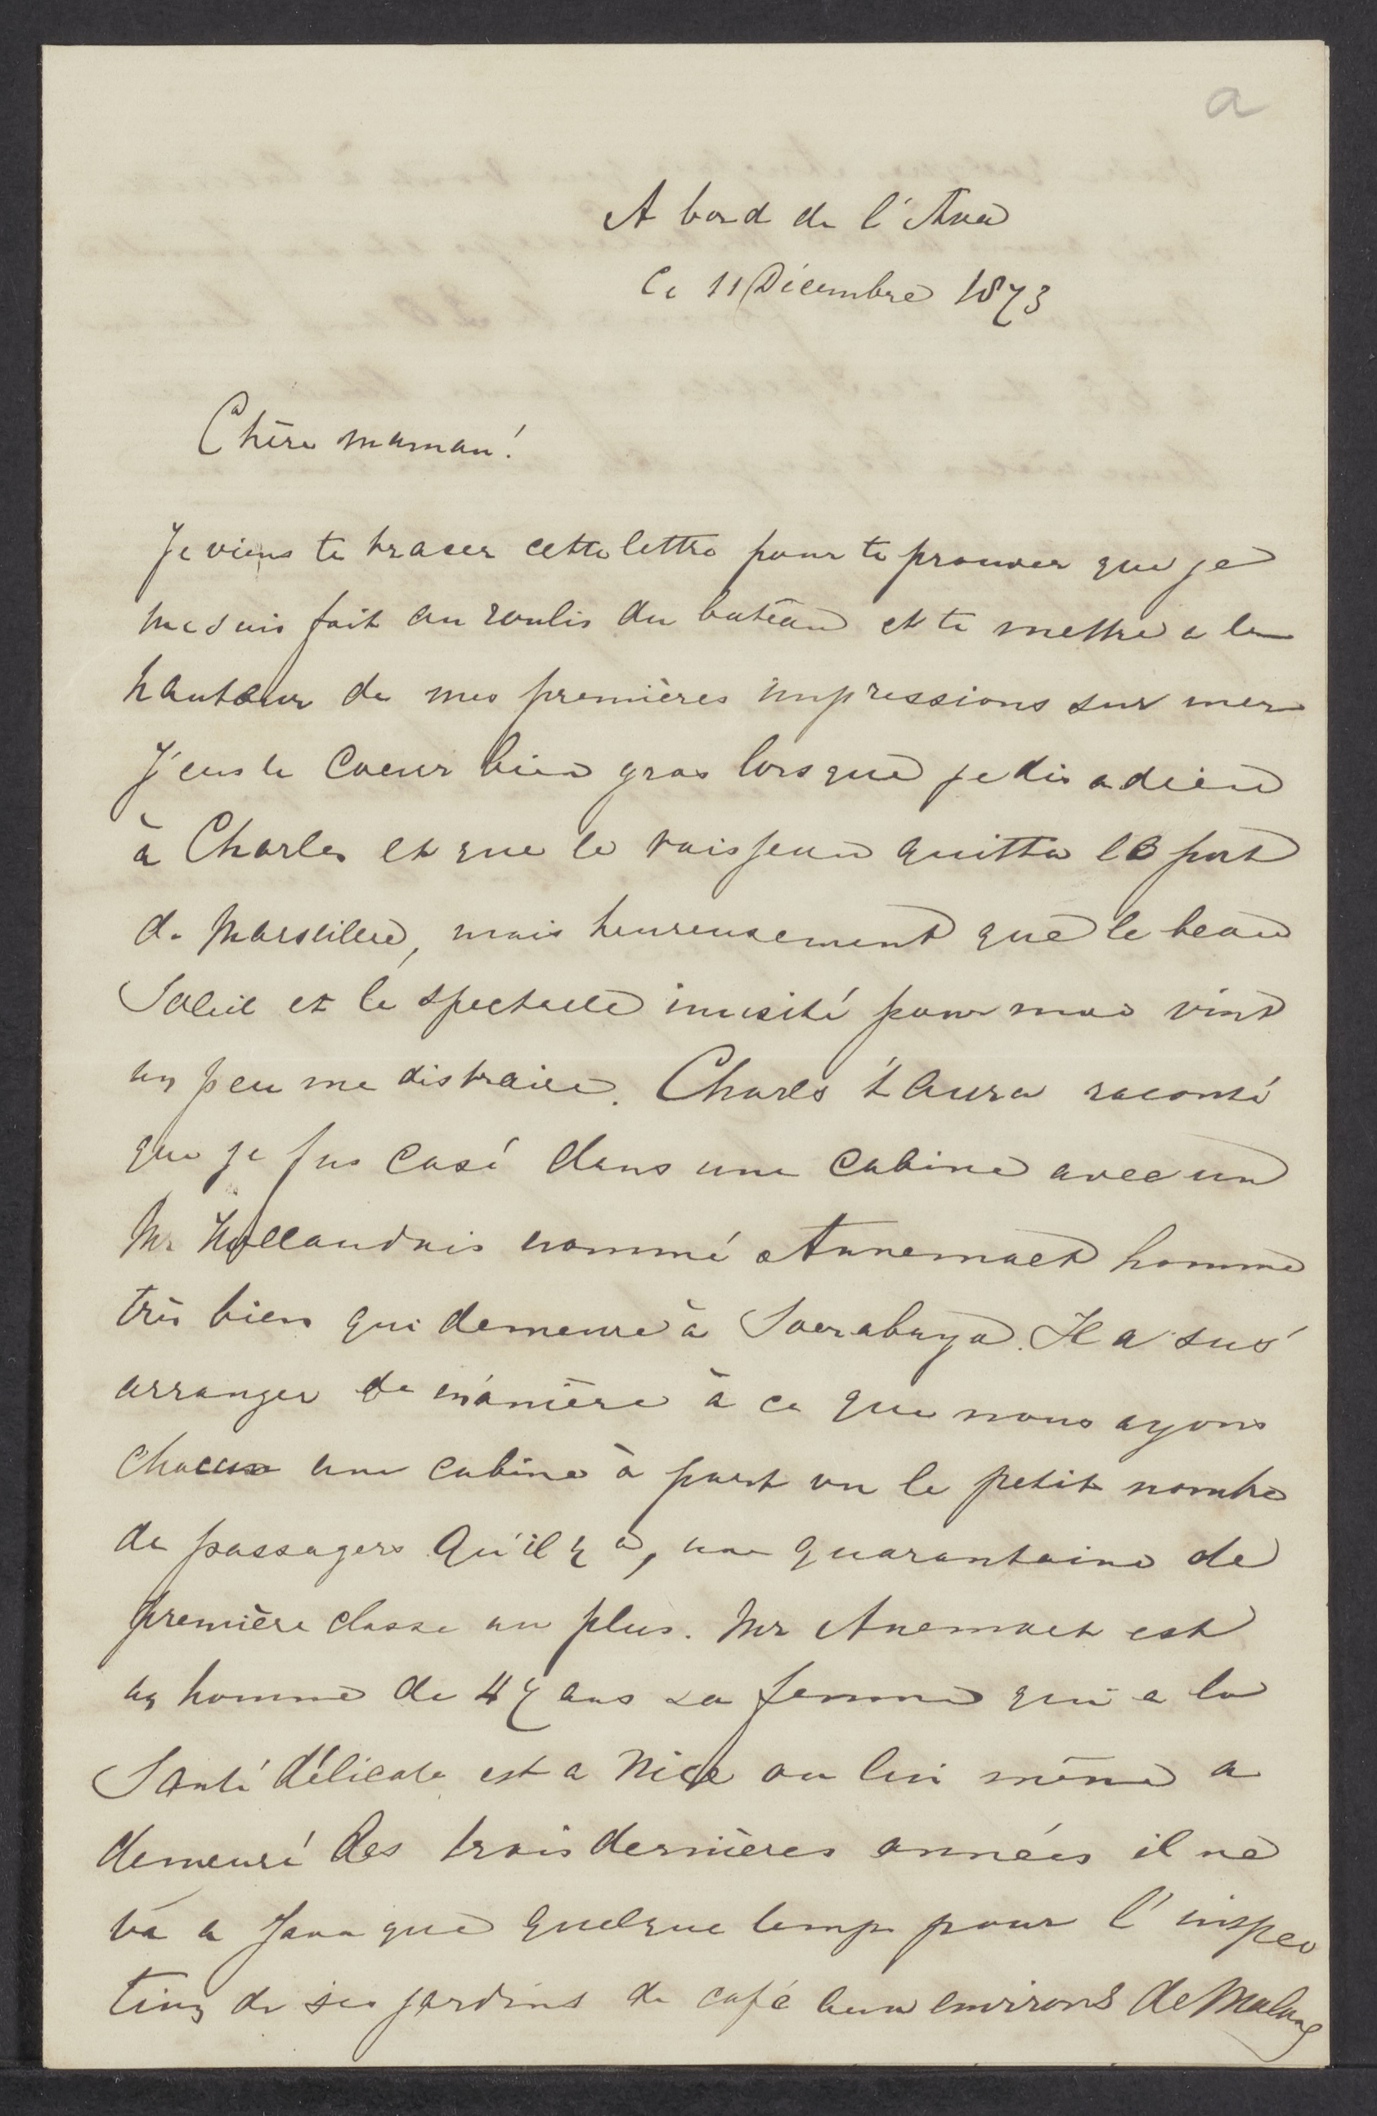 a
A bord de l'Ava
Ce 11 Décembre 1873
Chère maman!
Je viens te tracer cette lettre pour te prouver que je
me suis fait au roulis du bateau et te mettre a la
hauteur de mes premières impressions sur mer
J'eus le coeur bien gros lorsque je dis adieu
à Charles et que le vaisseau quitta le port
de Marseille, mais heureusement que le beau
Soleil et le spectacle inusité pour moi vint
un peu me distraire. Charles t'aura raconté
que je fus casé dans une cabine avec un
Mr Hollandais nommé Annemaet homme
très bien qui demeure à Soerabaya. Il a sus
arranger de manière à ce que nous ayons
chacun une cabine à part vu le petit nombre
de passagers qu'il y a, une quarantaine de
première classe au plus. Mr Anemaet est
un homme de 47 ans sa femme qui a la
Santé délicate est a Nice ou lui même a
demeuré des trois dernières années il ne
va a Java que quelque temps pour l'inspec
tion de ses jardins de café aux environs de Malang